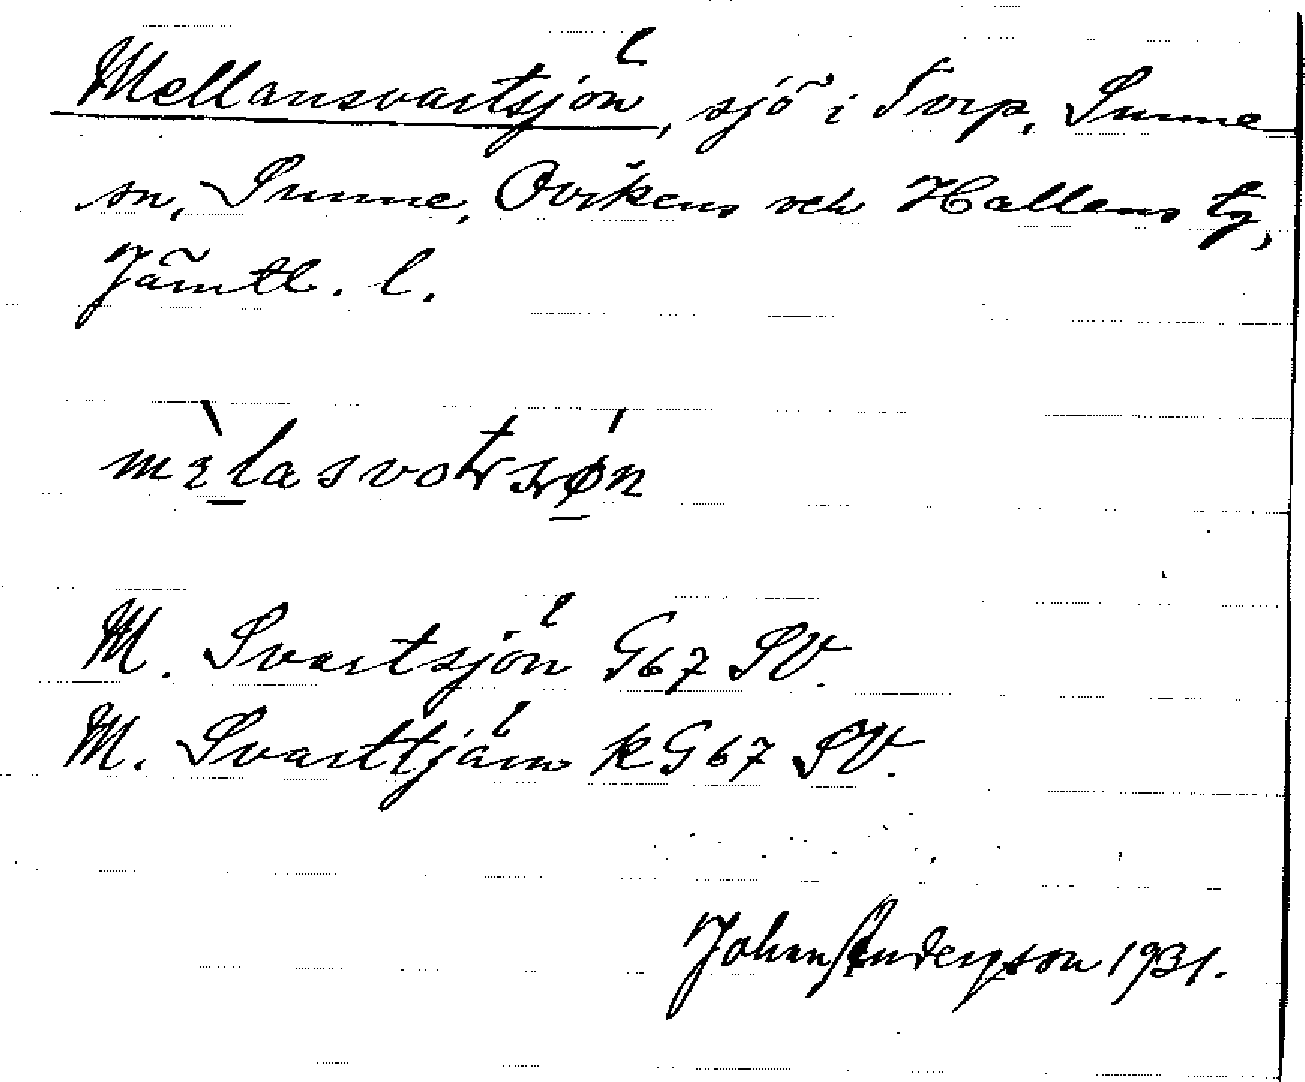 Mellansvartsjön, sjö i Torp, Sunne
sn, Sunne, Ovikens och Hallens tg,
Jämtl. l.
M. Svartsjön G67 SV.
M. Svarttjärn k G67 SV.
Johan Anderson 1931.